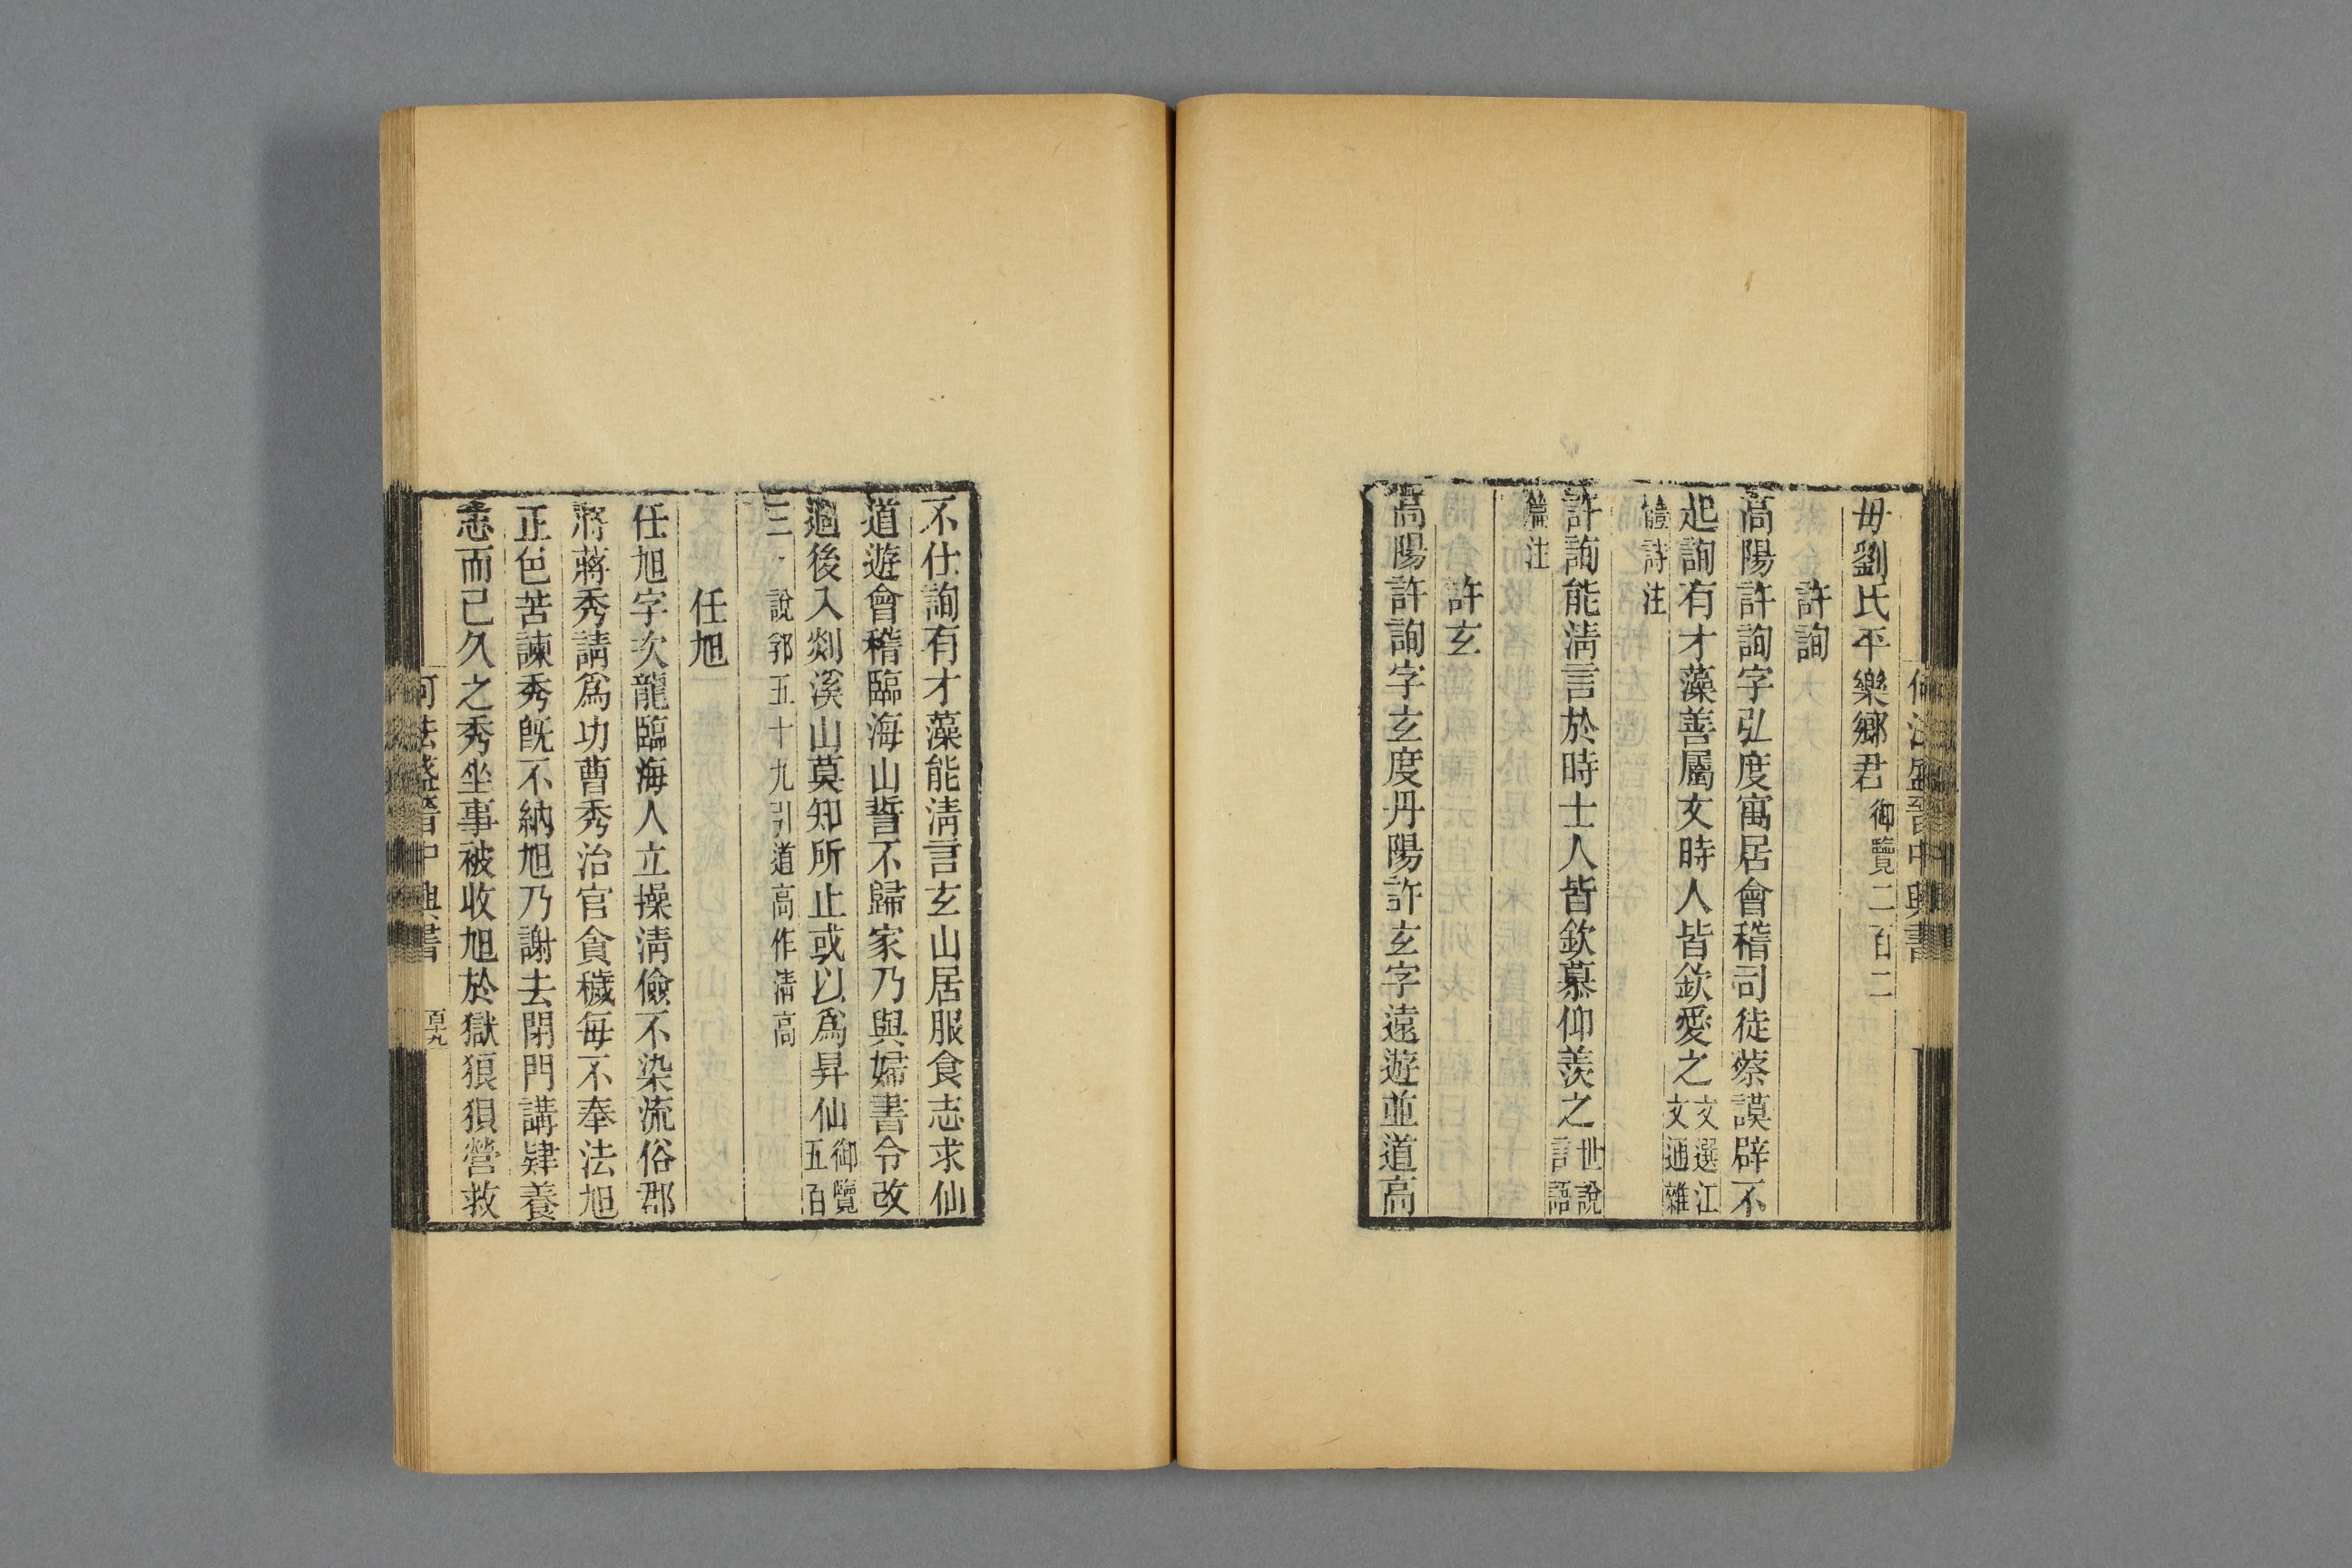 何法盛晉中興書
毋劉氏平樂鄉君御覽二百二
許詢
高陽許詢字弘度寓居會稽司徒蔡謨辟不
起詢有才藻善屬文時人皆欽愛之文選江文通雜
體詩注
許詢能淸言於時士人皆欽慕仰羨之世說言語
篇注
許玄
高陽許詢字玄度丹陽許玄字遠遊並道高
不仕詢有才藻能淸言玄山居服食志求仙
道遊會稽臨海山誓不歸家乃與婦書令改
適後入剡溪山莫知所止或以爲昇仙御覽五百
三說郛五十九引道高作淸高
任旭
任旭字次龍臨海人立操淸儉不染流俗郡
將蔣秀請爲功曹秀治官貪穢每不奉法旭
正色苦諫秀旣不納旭乃謝去閉門講肄養
志而已久之秀坐事被收旭於獄狼狽營救
何法盛晉中興書 百九